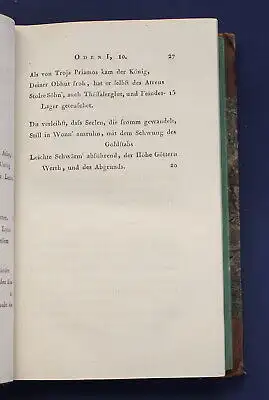 ODEN I, 10. 27
Als von Troja Priamos kam der König,
Deiner Obhut froh, hat er selbst des Atreus
Stolze Söhn', auch Thessalerglut, und Feindes- 15
Lager getäuschet.
Du verleihst, dass Seelen, die fromm gewandelt,
Still in Wonn' ausruhn, mit dem Schwung des
Goldstabs
Leichte Schwärm' abführend, der Höhe Göttern
Werth, und des Abgrunds. 20